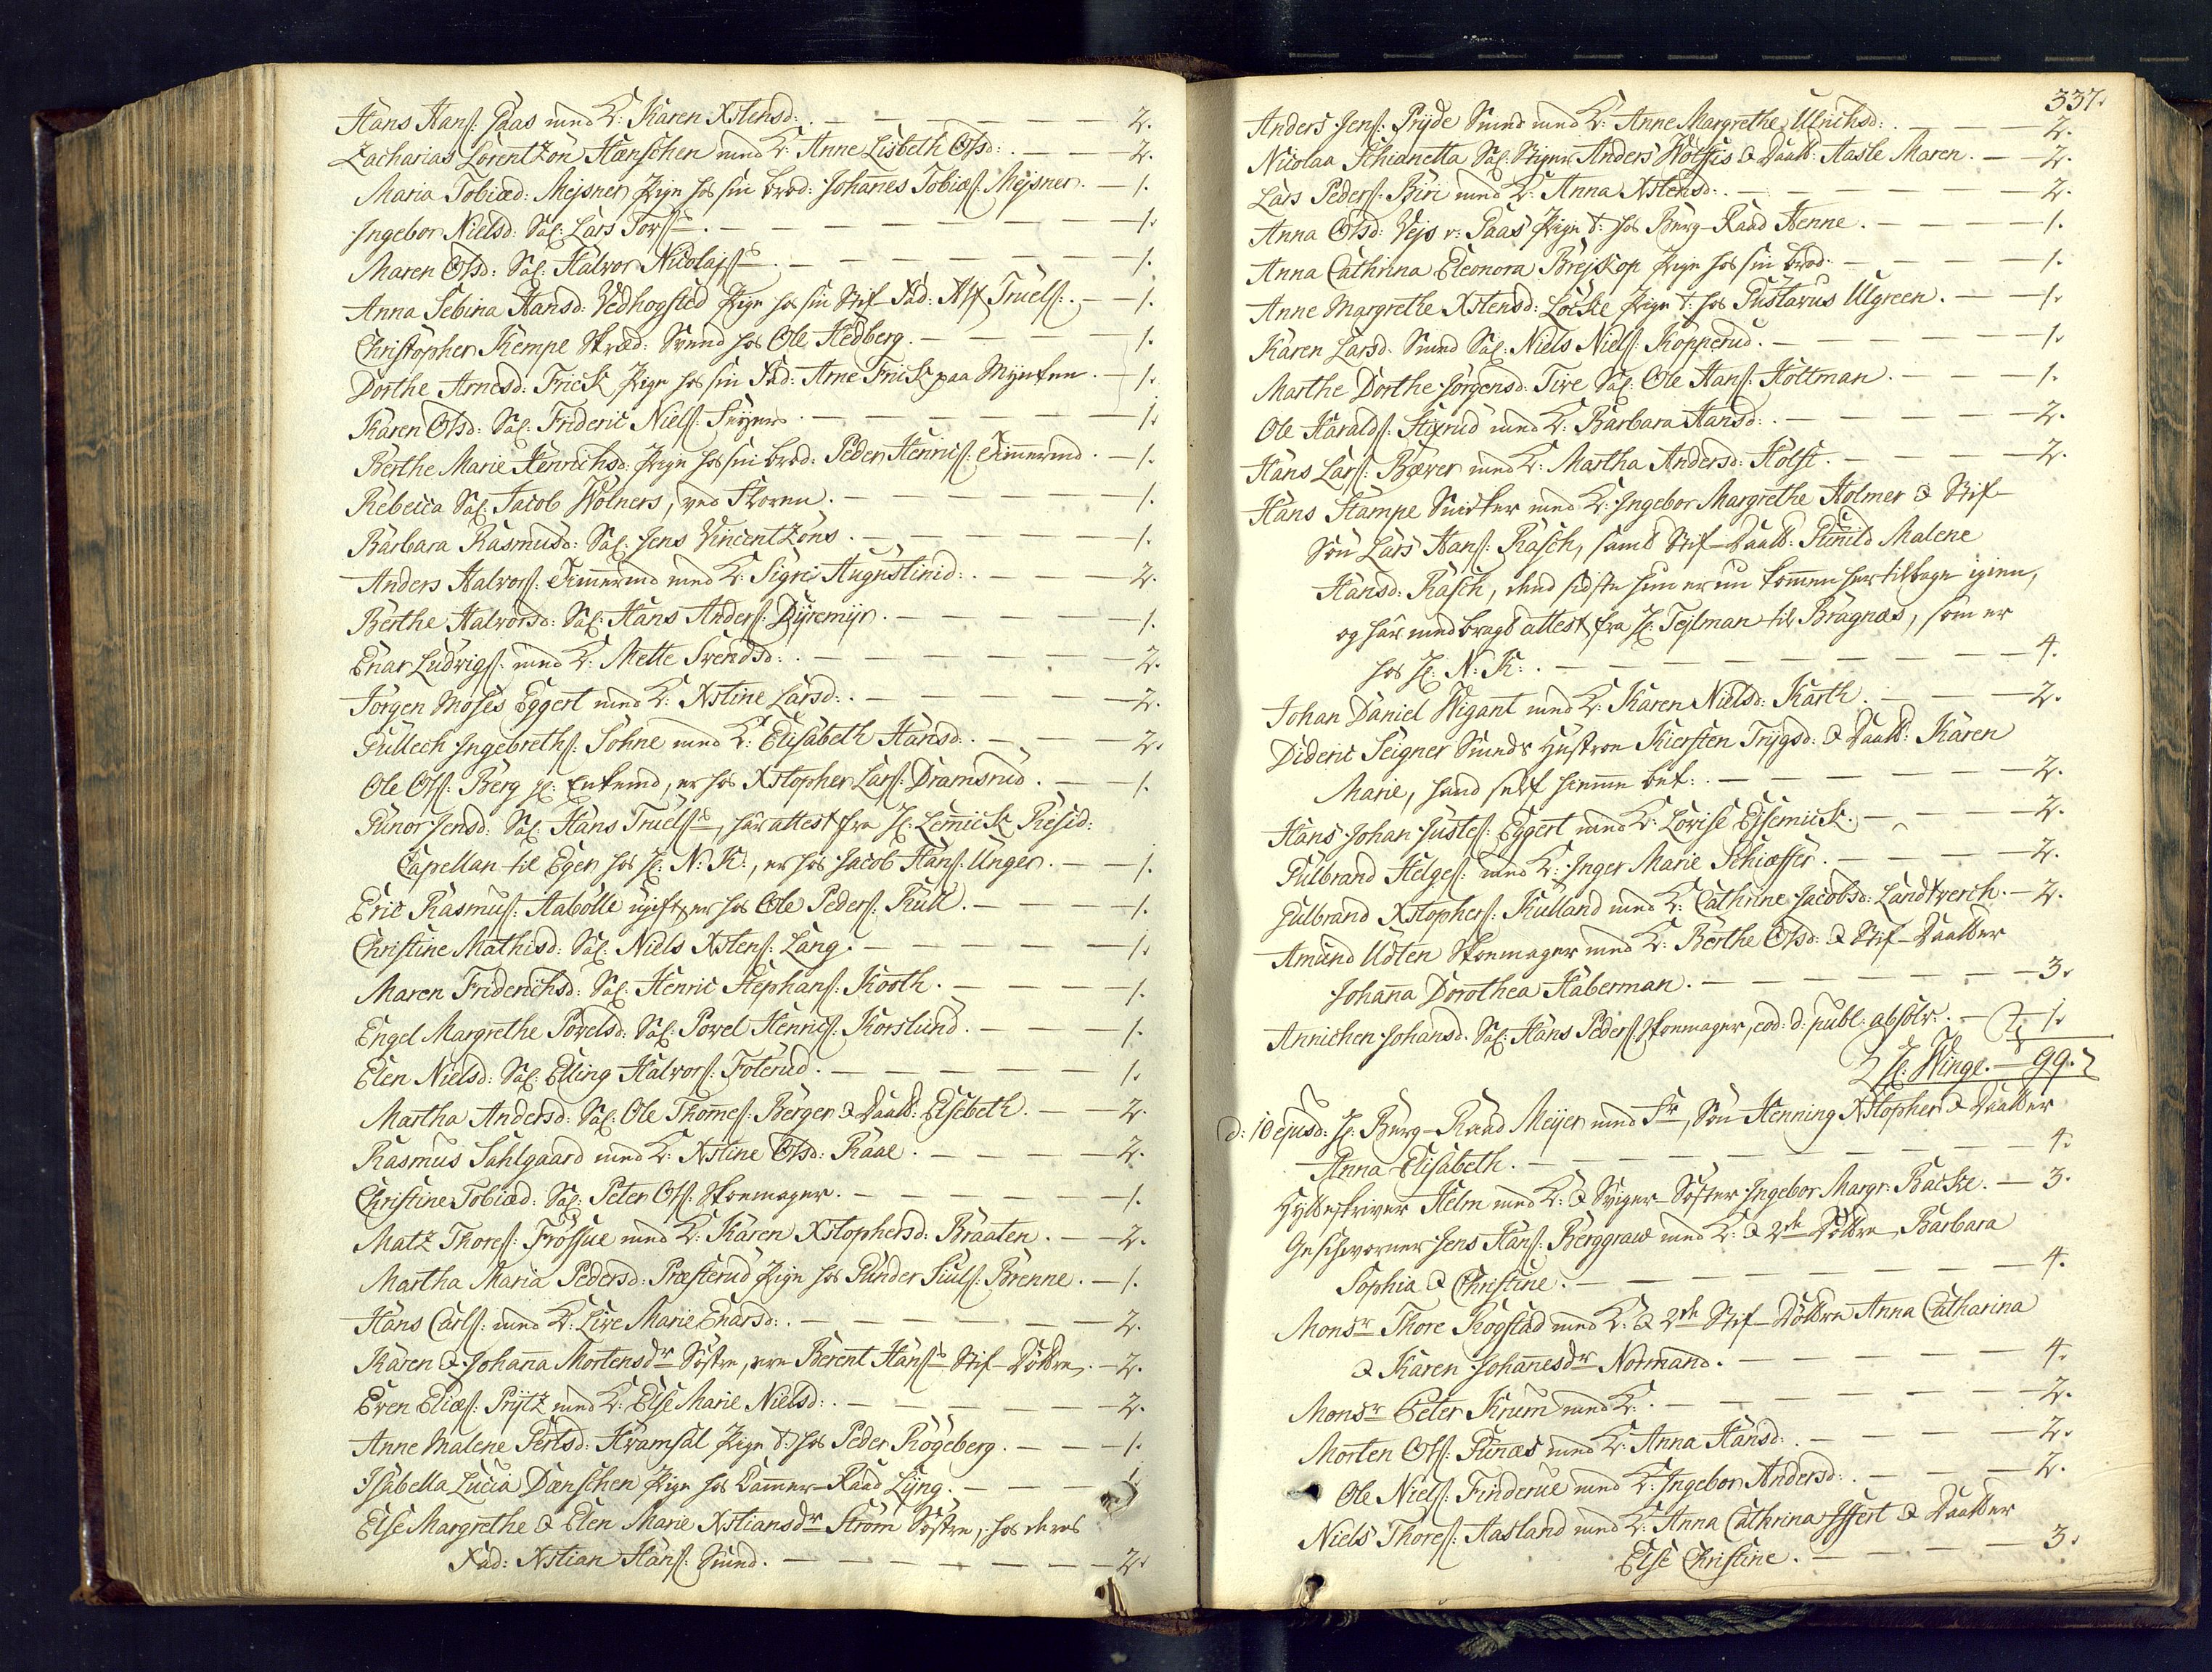 Hans Hans: Saas med K: Karen Xstensd: . — 2.
Zacharias Lorentzon Hænschen med K: Anne Lisbeth Olsd: . — 2.
Maria Tobiæd: Mejsner Pige hos sin brod: Johan̅es Tobiæs: Mejsner. — 1.
Ingebor Nielsd: Sal: Lars Tors: — 1.
Maren Olsd: Sal: Halvor Nicolajs: — 1.
Anna Sebina Hansd: Vedhogsted Pige hos sin Stif-Fad: Alf Truels: . — 1.
Christopher Kempe Skræd: Svend hos Ole Hedberg. — 1.
Dorthe Arnesd: Frick Pige hos sin Fad: Arne Frick paa Mynten. — 1.
Karen Olsd: Sal: Frideric Niels: — 1.
Berthe Marie Henrichsd: Pige hos sin brod: Peder Henrics: Tim̅ermd. — 1.
Rebecca Sal: Jacob Wolners, ved Skoven. — 1.
Barbara Rasmusd: Sal: Jens Vincentzøns. — 1.
Anders Halvors: Tim̅ermd med K: Sigri Augustinid: . — 2.
Berthe Halvorsd: Sal: Hans Anders: Dyremyr. — 1.
Enar Ludvigs: med K: Mette Svendsd: . — 2.
Jørgen Moses Eggert med K: Xstine Larsd: . — 2.
Gullech Ingebreths: Sohne med K: Elisabeth Hansd. — 2.
Ole Ols: Berg gl: Enkemd, er hos Xstopher Lars: Dramsrud. — 1.
Gunor Jensd: Sal: Hans Truels:, har attest fra H: Lem̅ick Resid:
Capellan til Eger hos H: N: K:, er hos Jacob Hans: Unger. — 1.
Eric Rasmus: Aabølle ugift, er hos Ole Peders: Rull. — 1.
Christine Mathisd: Sal: Niels Xstens: Lang. — 1.
Maren Friderichsd: Sal: Henric Stephans: Kooth. — 1.
Engel Margrethe Povelsd: Sal: Povel Henrics: Korslund. — 1.
Elen Nielsd: Sal: Elling Halvors: Foterud. — 1.
Martha Andersd: Sal: Ole Thom̅es: Berger & Daatt: Elsebeth. — 2.
Rasmus Sahlgaard med K: Xstine Olsd: Raae. — 2.
Christine Tobiæd: Sal: Peter Ols: Skoemager. — 1.
Matz Thores: Frøssue med K: Karen Xstophersd: Braaten. — 2.
Martha Maria Pedersd: Præsterud Pige hos Gunder Siuls: Brenne. — 1.
Hans Carls: med K: Live Marie Enarsd: . — 2.
Karen & Johan̅a Mortensdr Søstre, ere Berent Hans: Stif-Døttre. — 2.
Even Eliæs: Prytz med K: Else Marie Nielsd: . — 2.
Anne Malene Pertsd: Hvamsal Pige t: hos Peder Rogeberg. — 1.
Isabella Lucia Dænschen Pige hos Cam̅er-Raad Lyng. — 1.
Else Margrethe & Elen Marie Xstiansdr Strøm Søstre, hos deres
Fad: Xstian Hans: Smed. — 2.
337.
Anders Jens: Pryde Smed med K: Anne Margrethe Ulrichsd: . — 2.
Nicolaa Schianetta Sal: Stiger Anders Wolffis & Daatt: Aasle Maren. — 2.
Lars Peders: Biri med K: Anna Xstensd: . — 2.
Anna Olsd: Vejs v: Saas Pige t: hos Berg-Raad Henne. — 1.
Anna Cathrina Eleonora Brejskop Pige hos sin brod. — 1.
Anne Margrethe Xstensd: Locke Pige t: hos Gustavus Ulgreen. — 1.
Karen Larsd. Smed Sal: Niels Niels: Kopperud. — 1.
Marthe Dorthe Jørgensd: Tire Sal: Ole Hans: Holtman. — 1.
Ole Haralds: Stixrud med K: Barbara Hansd: . — 2.
Hans Lars: Bæver med K: Martha Andersd: Holst. — 2.
Hans Stampe Snidker med K: Ingebor Margrethe Holmer & Stif-
Søn Lars Hans: Rasch, samt Stif-Daatt: Gunild Malene
Hansd: Rasch, dend sidste hun er nu kom̅en her tilbage igien,
og har med bragt attest fra H: Tejlman til Bragnæs, som er
hos H: N: K: . — 4.
Johan Daniel Wigant med K: Karen Nielsd: Karth. — 2.
Dideric Seigner Smeds Hustroe Kiersten Trygsd: & Daatt: Karen
Marie, hand self hiem̅e bet: . — 2.
Hans Johan Justes: Eggert med K: Lovise Ejsemick. — 2.
Gulbrand Helges: med K: Inger Marie Schiæffer. — 2.
Gulbrand Xstophers: Kulland med K: Cathrine Jacobsd: Landtverch. — 2.
Amund Udten Skoemager med K: Berthe Olsd: & Stif-Daatter
Johan̅a Dorothea Haberman. — 3.
Annichen Johansd. Sal: Hans Peders: Skoemager, eod: d: publ: absolv: . — 1.
H: Winge. — 99.
d: 10 ejusd: H: Berg-Raad Meijer med Fr, Søn Henning Xstopher & Daatter
Anna Elisabeth. — 4.
Hytteskriver Helm med K: & Sviger-Søster Ingebor Margr: Backe. — 3.
Geschworner Jens Hans: Berggraw med K: & 2de Døttre, Barbara
Sophia & Christine. — 4.
Monsr Thore Rogstad med K: & 2de Stif-Døttre Anna Catharina
& Karen Johan̅esdr Normand. — 4.
Monsr Peter Krum med K: . — 2.
Morten Ols: Runæs med K: Anna Hansd: . — 2.
Ole Niels: Finderue med K: Ingebor Andersd: . — 2.
Niels Thores: Aasland med K: Anna Cathrina Iffert & Daatter
Else Christine. — 3.